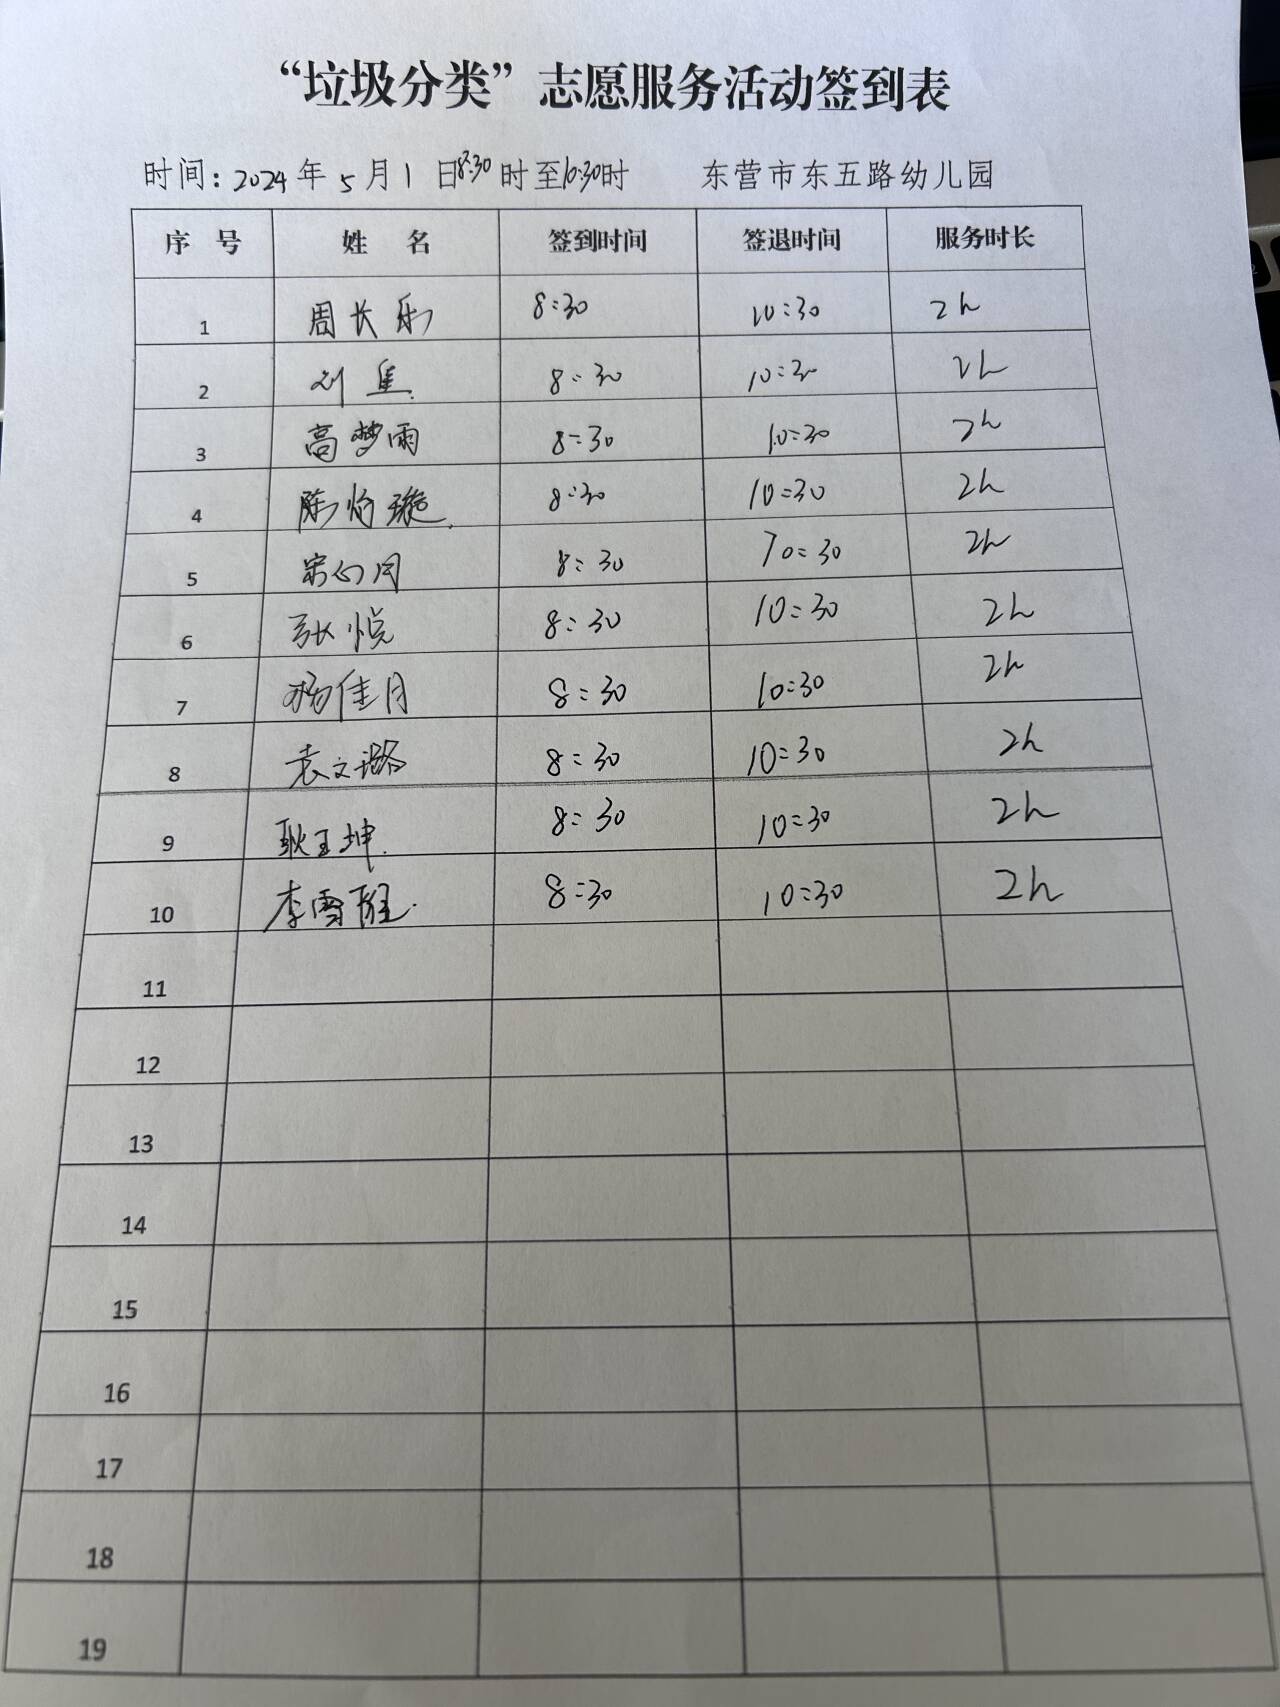 “垃圾分类”志愿服务活动签到表
时间：2024年5月1日8:30时至10:30时 东营市东五路幼儿园
序 号 姓 名 签到时间 签退时间 服务时长
1 周长乐 8:30 10:30 2h
2 刘 8:30 10:30 2h
3 高梦雨 8:30 10:30 2h
4 陈 璇 8:30 10:30 2h
5 宋心月 8:30 10:30 2h
6 张悦 8:30 10:30 2h
7 杨佳月 8:30 10:30 2h
8 袁文璐 8:30 10:30 2h
9 耿玉坤 8:30 10:30 2h
10 李雪 8:30 10:30 2h
11
12
13
14
15
16
17
18
19